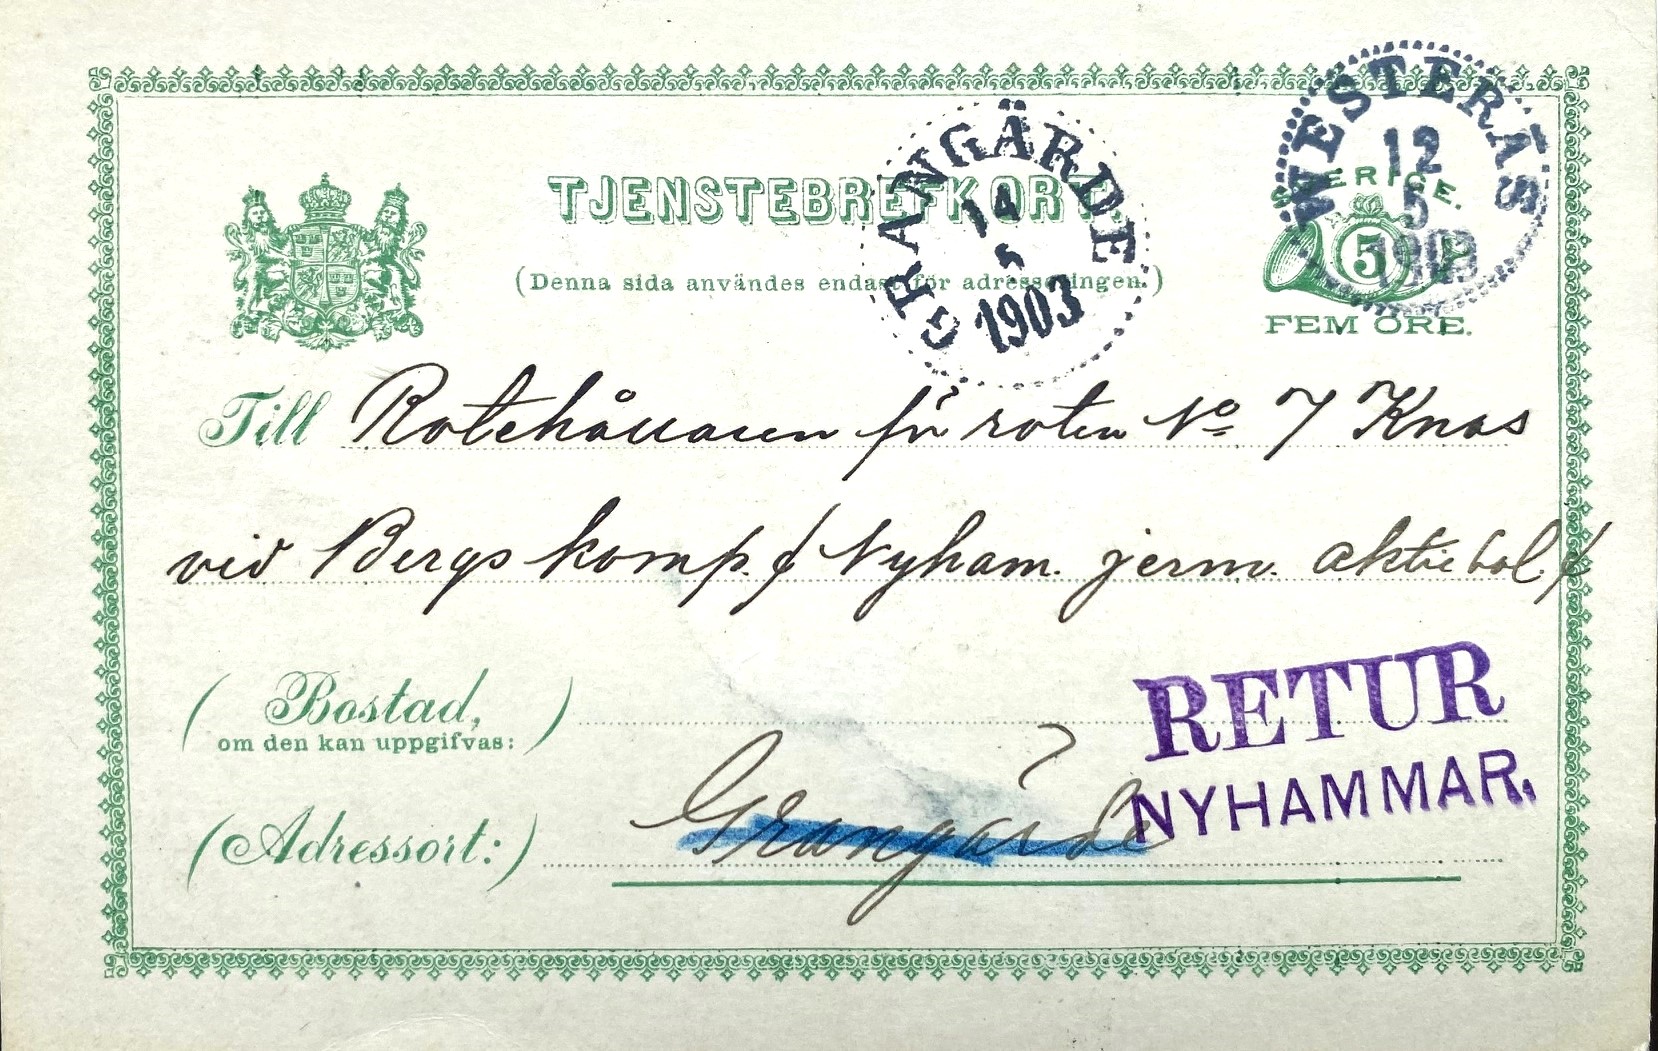 TJENSTEBREFKORT.
(Denna sida användes endast för adresseringen.)
SVERIGE.
5
FEM ÖRE.
GRANGÄRDE
14
5
1903
WESTERÅS
12
5
1903
Till Rotehållaren för roten No 7 Knas
vid Bergs komp. / Nyham. jernv. aktiebol. /
(Bostad,
om den kan uppgifvas:)
RETUR
NYHAMMAR.
(Adressort:) Grangärde